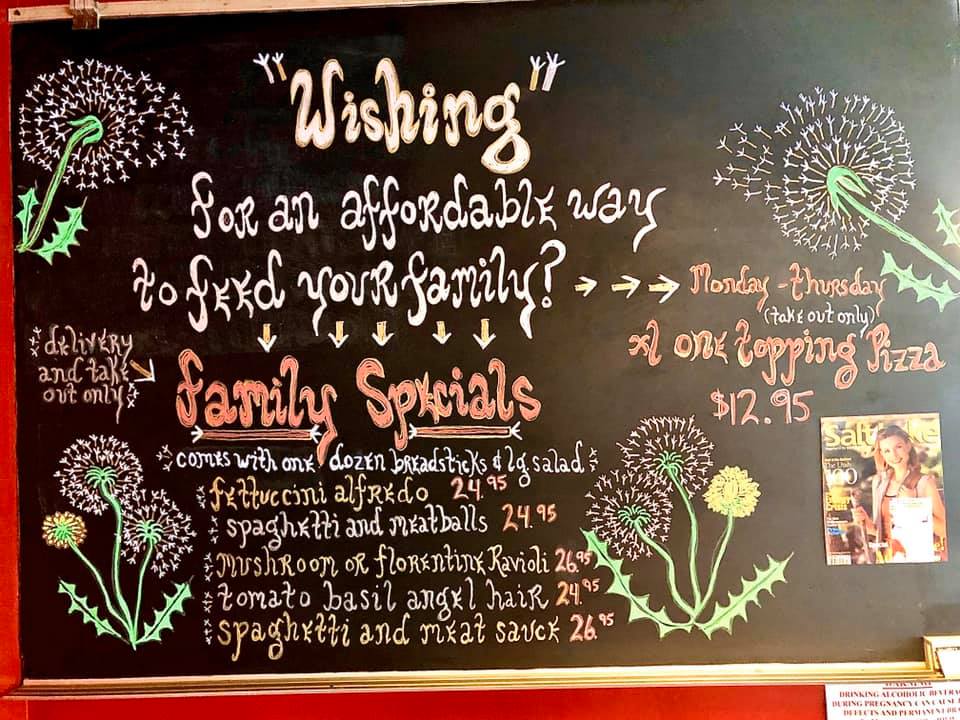 "Wishing"
for an affordable way
to feed your family?
Monday - thursday
(take out only)
xl one topping Pizza
$12.95
delivery
and take
out only
family Specials
comes with one dozen breadsticks & lg salad
fettuccini alfredo 24.95
spaghetti and meatballs 24.95
mushroom or florentine Ravioli 26.95
tomato basil angel hair 24.95
spaghetti and meat sauce 26.95
Salt Lake
100
DRINKING ALCOHOLIC BEVERA
DURING PREGNANCY CAN CAUSE
DEFECTS AND PERMANENT BRA